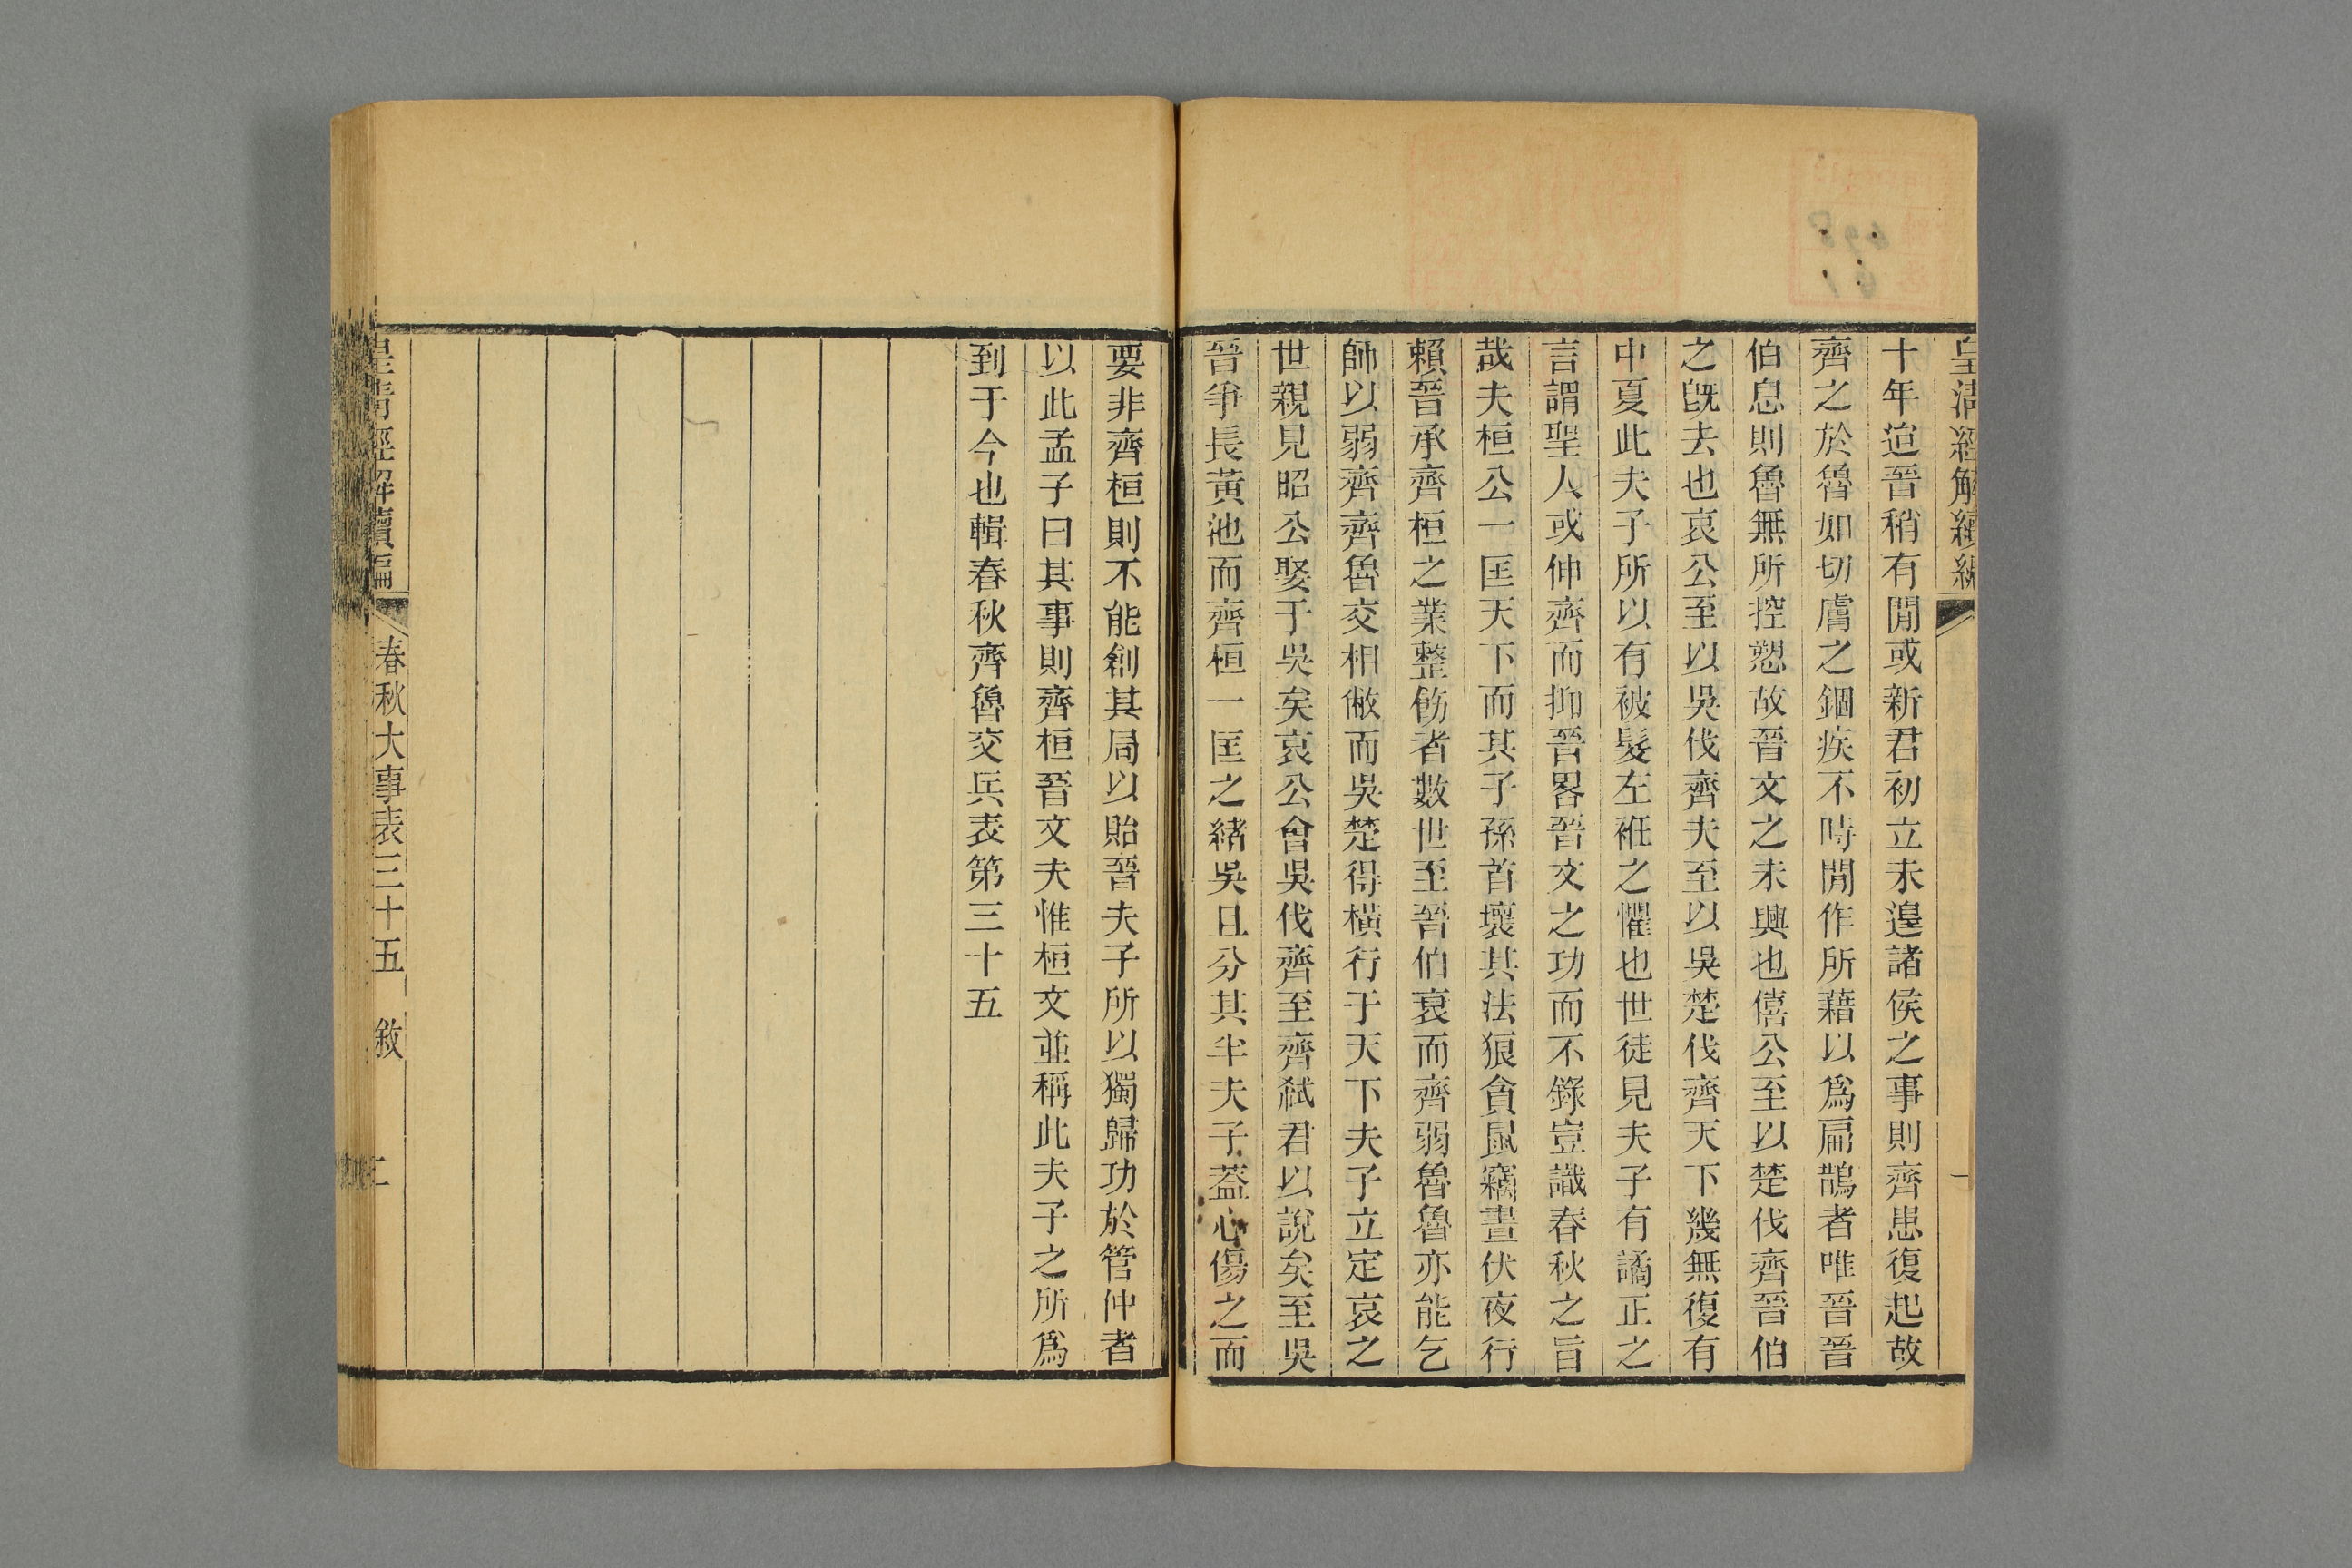 皇清經解續編
一
十年迨晉稍有閒或新君初立未遑諸侯之事則齊患復起故
齊之於魯如切膚之錮疾不時閒作所藉以爲扁鵲者唯晉晉
伯息則魯無所控愬故晉文之未興也僖公至以楚伐齊晉伯
之旣去也哀公至以吳伐齊夫至以吳楚伐齊天下幾無復有
中夏此夫子所以有被髮左衽之懼也世徒見夫子有譎正之
言謂聖人或伸齊而抑晉畧晉文之功而不錄豈識春秋之旨
哉夫桓公一匡天下而其子孫首壞其法狼貪鼠竊晝伏夜行
賴晉承齊桓之業整飭者數世至晉伯衰而齊弱魯魯亦能乞
師以弱齊齊魯交相敝而吳楚得橫行于天下夫子立定哀之
世親見昭公娶于吳矣哀公會吳伐齊至齊弒君以說矣至吳
晉爭長黃池而齊桓一匡之緒吳且分其半夫子葢心傷之而
要非齊桓則不能創其局以貽晉夫子所以獨歸功於管仲者
以此孟子曰其事則齊桓晉文夫惟桓文並稱此夫子之所爲
到于今也輯春秋齊魯交兵表第三十五
皇清經解續編
春秋大事表三十五 敘
二